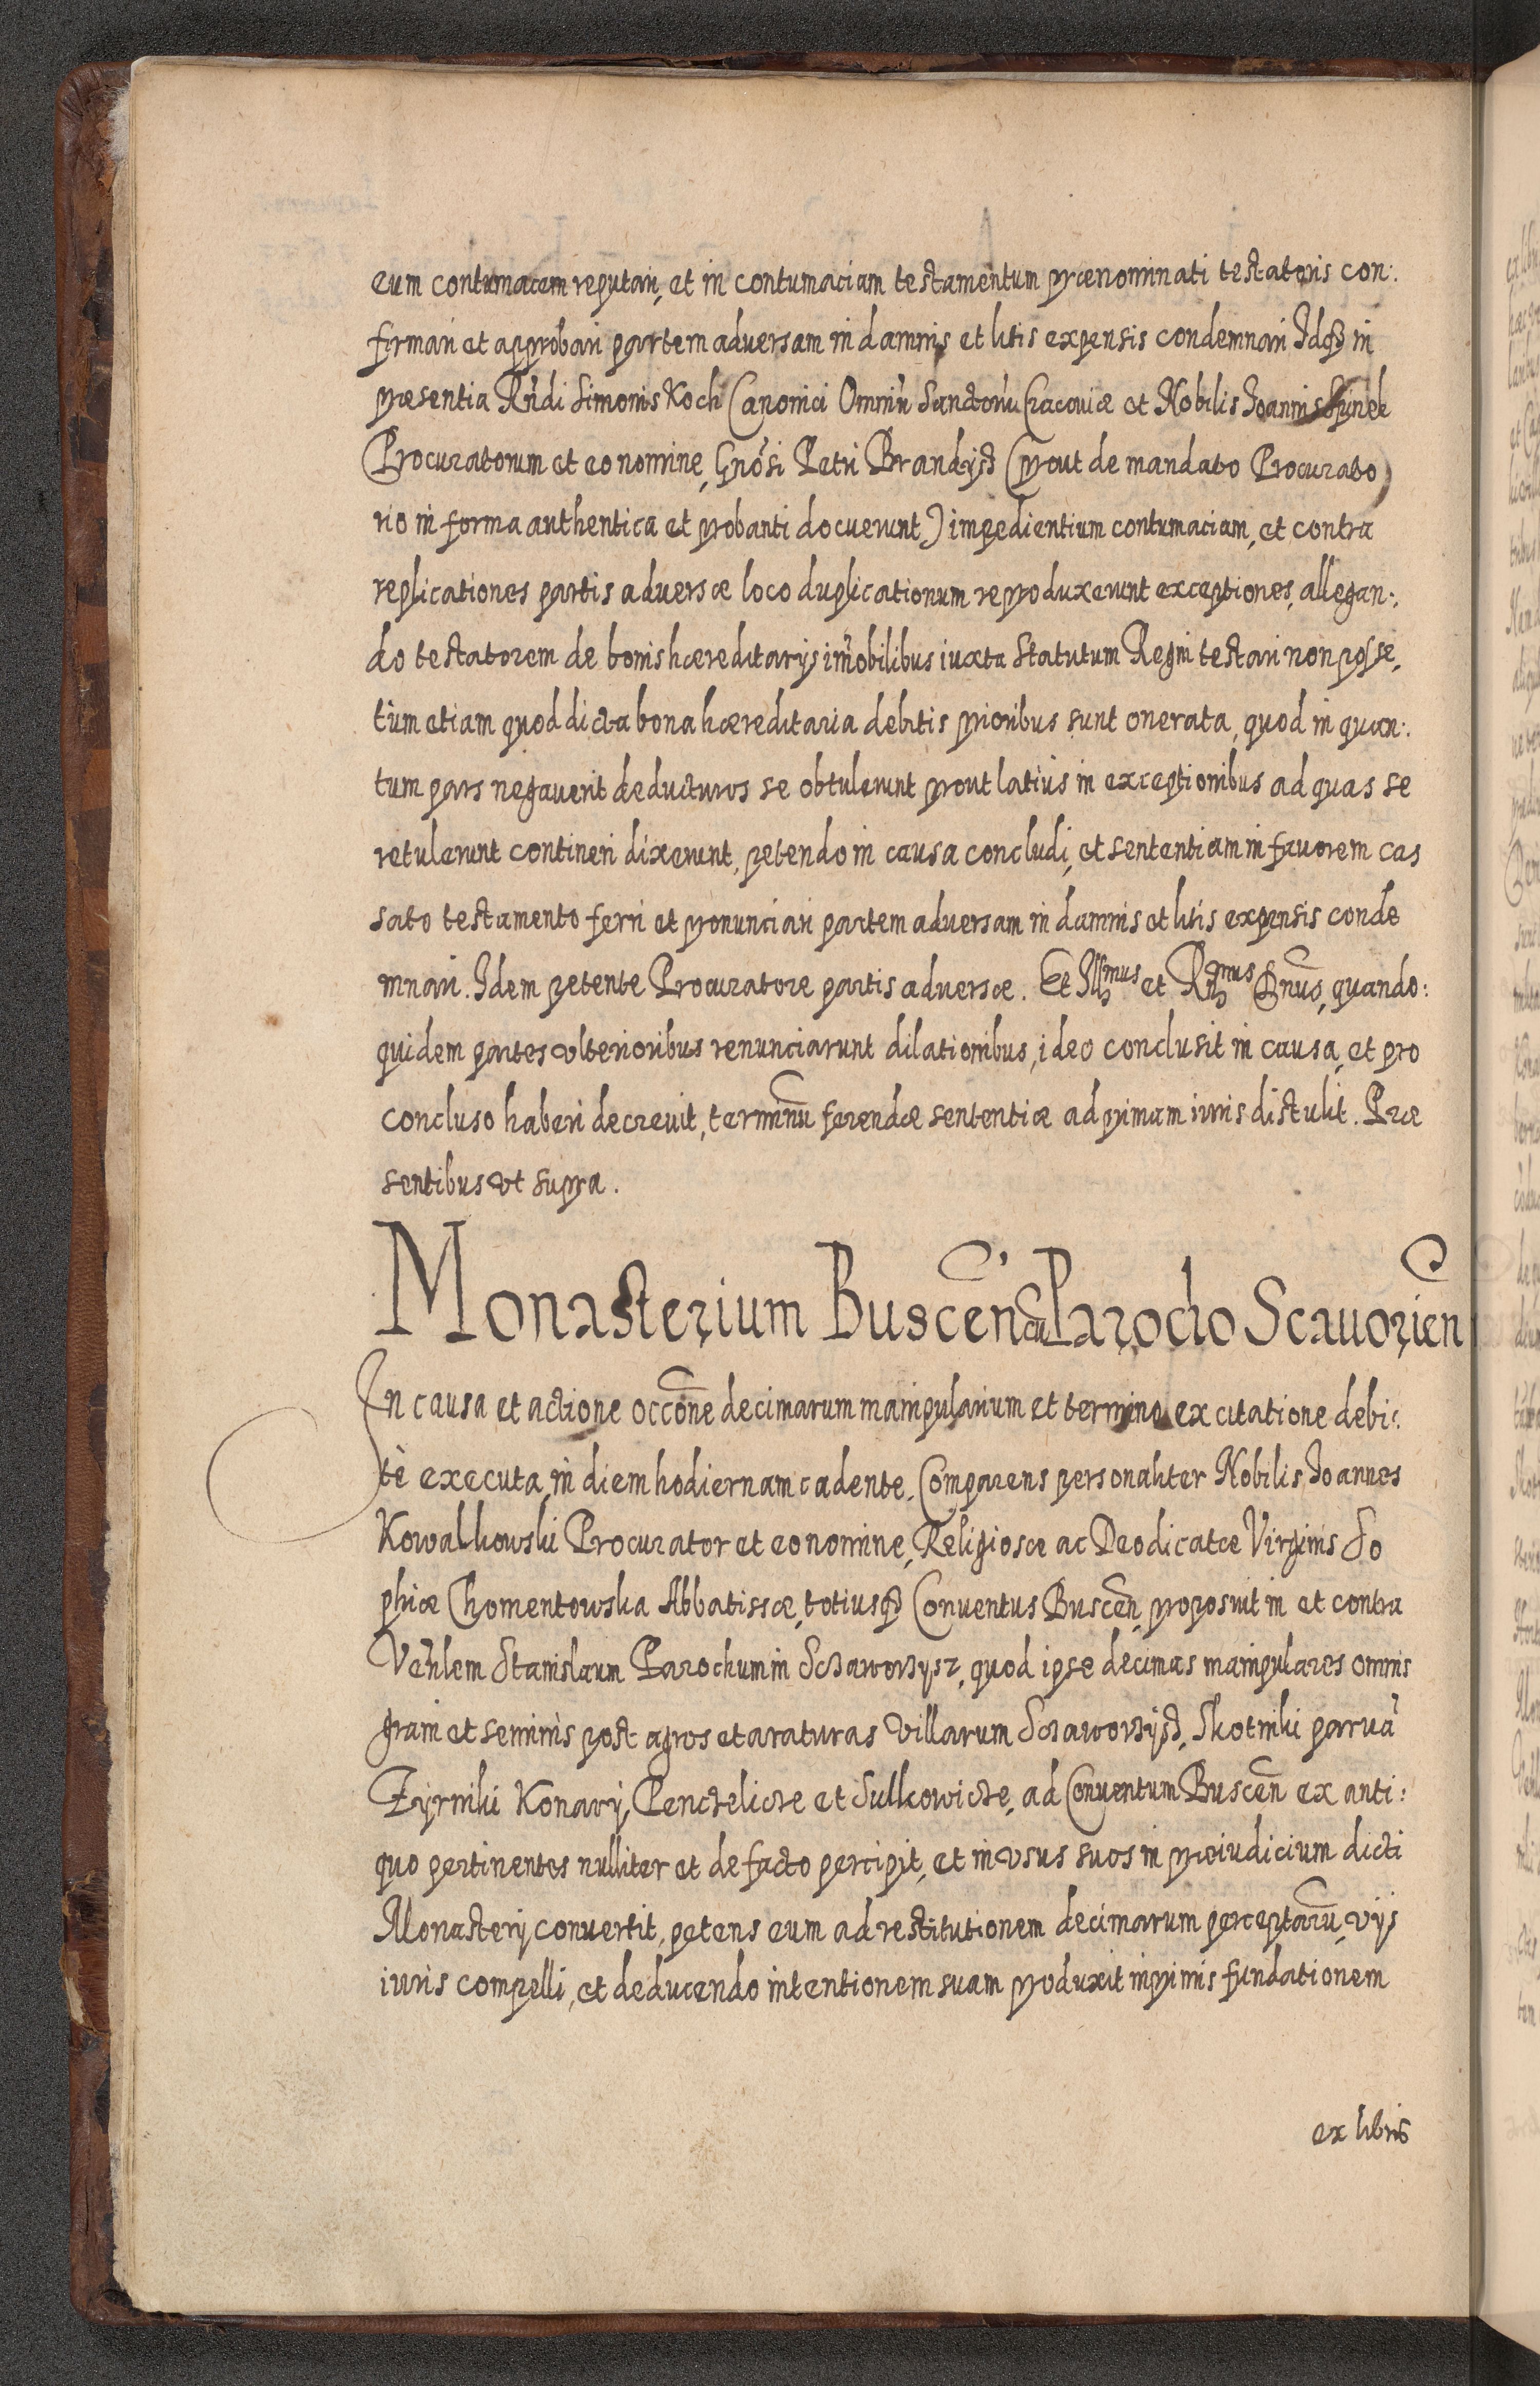 eum contumacem reputari, et in contumaciam testamentum prænominati testatoris con:
firmari et approbari partem adversam in damnis et litis expensis condemnari Idq3 in
præsentia Rndi Simonis Koch Canonici Omniũ Sanctorũ Cracoviæ et Nobilis Joannis
Procuratorum et eo nomine, Gnosi Petri Brandijs (prout de mandato Procurato
rio in forma authentica et probanti docuerunt,) impedientium contumaciam, et contra
replicationes partis adversæ loco duplicationum reproduxerunt exceptiones, allegan:
do testatorem de bonis hæreditarijs im̃obilibus iuxta Statutum Regni testari non posse,
tùm etiam quod dicta bona hæreditaria debitis prioribus sunt onerata, quod in quan:
tum pars negaverit deducturos se obtulerunt prout latiùs in exceptionibus ad quas se
retulerunt contineri dixerunt, petendo in causa concludi, et sententiam in favorem cas
sato testamento ferri et pronunciari partem adversam in damnis et litis expensis conde
mnari. Idem petente Procuratore partis adversæ. Et Illmus et Rndmus Dnus, quando:
quidem partes vlterioribus renunciarunt dilationibus, ideo conclusit in causa, et pro
concluso haberi decrevit, terminũ ferendæ sententiæ ad primam iuris distulit. Præ
sentibus vt supra.
Monasterium Buscen̄ cũ Parocho Scavorien̄
In causa et actione occõne decimarum manipularium et termino ex citatione debi:
tè executa, in diem hodiernam cadente. Comparens personaliter Nobilis Joannes
Kowalkowski Procurator et eo nomine, Religiosæ ac Deo dicatæ Virginis So
phiæ Chomentowska Abbatissæ, totiusq3 Conventus Buscen̄, proposuit in et contra
Venlem Stanislaum Parochum in Sczaworysz, quod ipse decimas manipulares omnis
grani et seminis post agros et araturas villarum Sczaworyss, Skotniki parvã
Zyrniki Konary, Penczelicze et Sulkowicze, ad Conventum Buscen̄ ex anti:
quo pertinentes nulliter et de facto percipit, et in vsus suos in præiudicium dicti
Monasterij convertit, petens eum ad restitutionem decimarum perceptarũ, vijs
iuris compelli, et deducendo intentionem suam produxit inprimis fundationem
ex libris